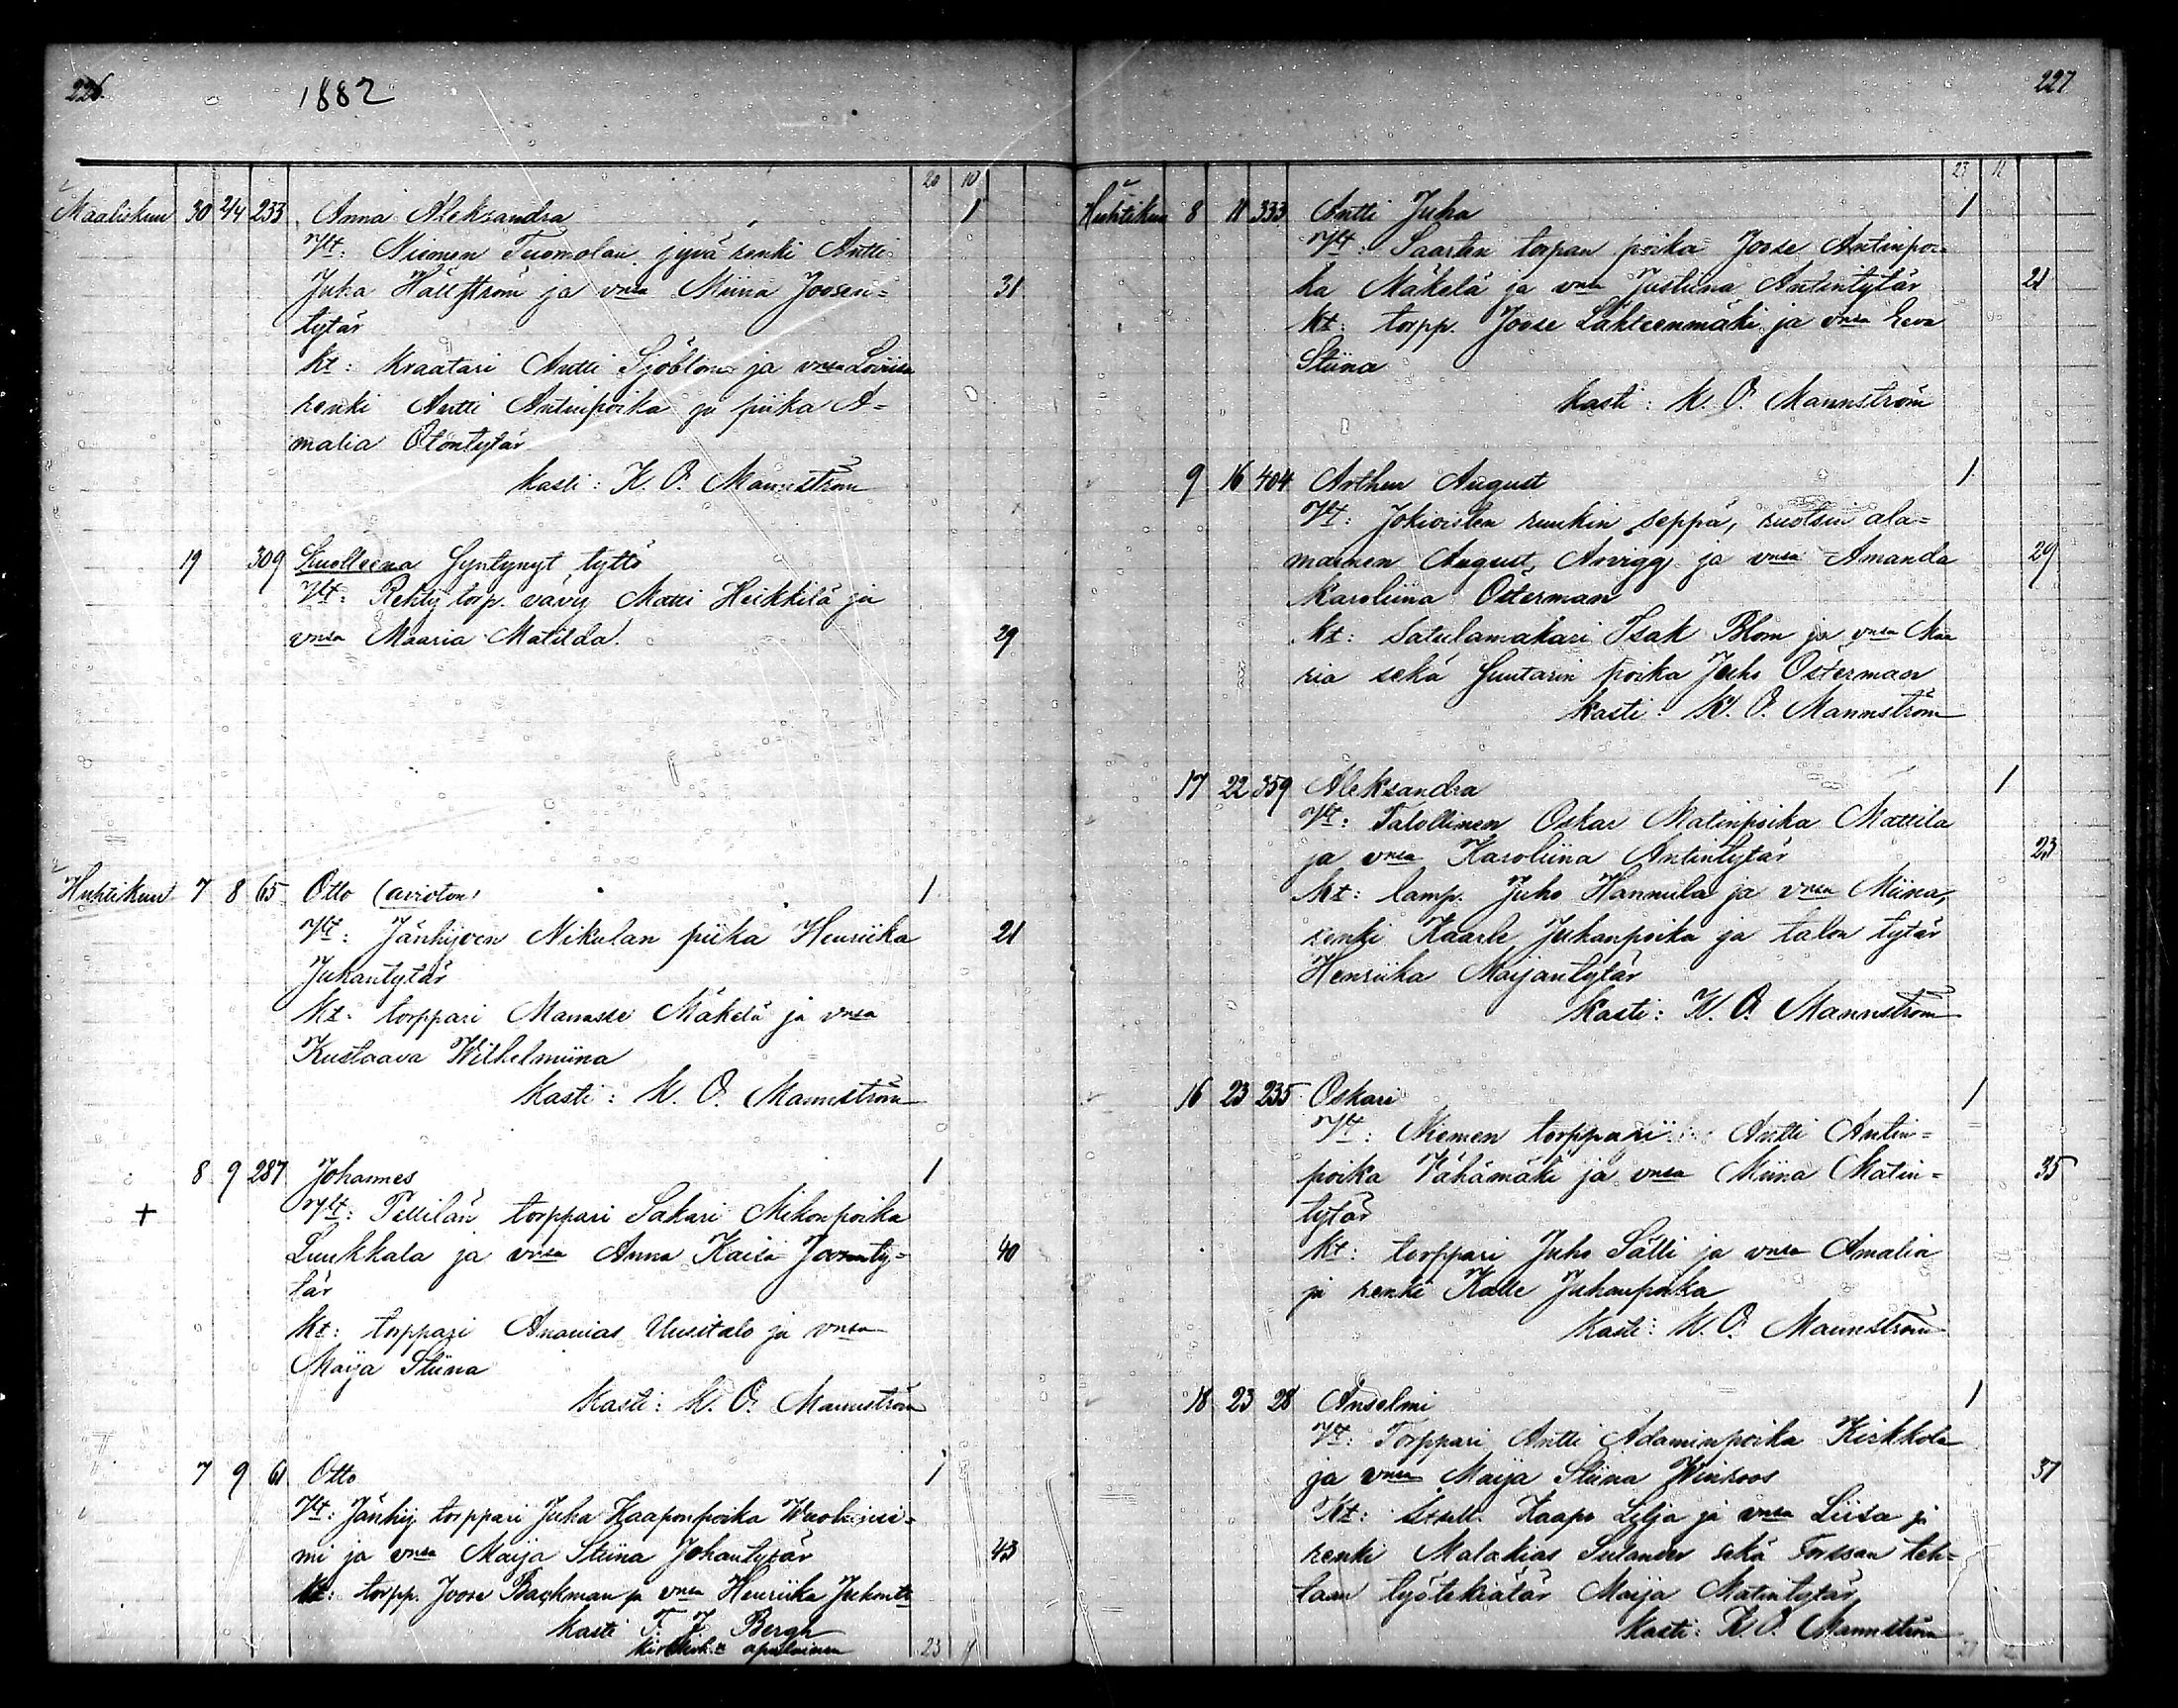 226.
1882
20 10
Maaliskuu 30 2/4 233 Anna Aleksandra 1
Vt: Niemen Tuomolan jyvä renki Antti
Juha Hällström ja vmsa Miina Joosen= 31
tytär
kt: kraatari Antti Sjöblom ja vmsa Loviisa
renki Antti Antinpoika ja piika A=
malia Otontytär
kasti: K. O. Mannström
19 309 Kuolleena syntynyt tyttö
Vt: Rehty torp. vävy Matti Heikkilä ja
vmsa Maaria Matilda. 29
Huhtikuu 7 8 65 Otto (avioton) 1
Vt: Jänhijoen Nikulan piika Henriika 21
Juhantytär
kt: torppari Manasse Mäkelä ja vmsa
Kustaava Wilhelmiina
kasti: K. O. Mannström
8 9 287 Johannes 1
+ Vt: Pellilän torppari Sakari Mikonpoika
Luukkala ja vmsa Anna Kaisa 40
tär
kt: torppari Ananias Uusitalo ja vmsa
Maija Stiina
kasti: K. O. Mannström
7 9 61 Otto 1
Vt: Jänhij torppari Juha Kaaponpoika
mi ja vmsa Maija Stiina Johantytär 43
kt: torpp. Joose Backman ja vmsa Henriika
kasti F. J. Bergh
apulainen 23
227
23 11
Huhtikuu 8 11 333 Antti Juha 1
Vt: Saarten torpan poika Joose Antinpoi=
ka Mäkelä ja vmsa Justiina Antintytär 21
kt: torpp. Joose Lähteenmäki ja vmsa Eeva
Stiina
kasti: K. O. Mannström
9 16 404 Arthur August 1
Vt: Jokioisten ruukin seppä, ruotsin ala=
mainen August Arvigg ja vmsa Amanda 29
Karoliina Österman
kt: Satulamakari Isak Blom ja vmsa Maa
ria sekä Suutarin poika Juho Österman
kasti: K. O. Mannström
17 22 359 Aleksandra 1
Vt: Talollinen Oskar Matinpoika Mattila
ja vmsa Karoliina Antintytär 23
kt: lamp. Juho Hannula ja vmsa Miina,
renki Kaarle Juhanpoika ja talon tytär
Henriika Maijantytär
kasti: K. O. Mannström
16 23 235 Oskari 1
Vt: Niemen torppari Antti Antin=
poika Vähämäki ja vmsa Miina Matin= 35
tytär
kt: torppari Juho Sälli ja vmsa Amalia
ja renki Kalle Juhanpoika
kasti: K. O. Mannström
18 23 28 Anselmi 1
Vt: Torppari Antti Adaminpoika Kirkkola
ja vmsa Maija Stiina Winroos 37
Kt: Kaapo Lilja ja vmsa Liisa ja
renki Malakias Sulander sekä Forssan teh=
taan työtekiätär Maija Matintytär
kasti: K. O. Mannström